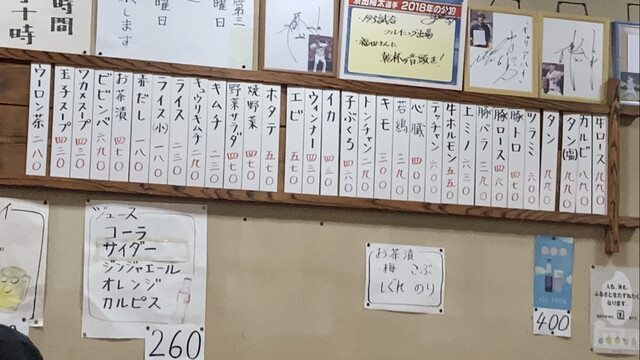 牛ロース 九九〇
カルビ 八九〇
タン(塩) 九九〇
タン 九九〇
ツラミ 六〇〇
豚トロ 五七〇
豚ロース 四六〇
豚バラ 三九〇
ミノ 六二〇
牛ホルモン 五五〇
テッチャン 六〇〇
心臓 四〇〇
若鶏 三九〇
キモ 三〇〇
トンチャン 三九〇
子ぶろ 四六〇
イカ 四三〇
ウインナー 四三〇
エビ 五七〇
ホタテ 五七〇
焼野菜 四七〇
野菜サラダ 四七〇
キムチ 二九〇
キュウリキムチ 二九〇
ライス 二三〇
ライス(小) 一八〇
赤だし 一八〇
お茶漬 四七〇
ビビンバ 六九〇
ワカメスープ 四三〇
玉子スープ 四三〇
ウーロン茶 一八〇
第三
曜日
曜日
します
時間
十時
2018年の公約
ジュース
コーラ
サイダー
ジンジャエール
オレンジ
カルピス
260
お茶漬
梅 こぶ
しぐれ のり
400
人も、米も、
ふるさとをたずねたく
なります。